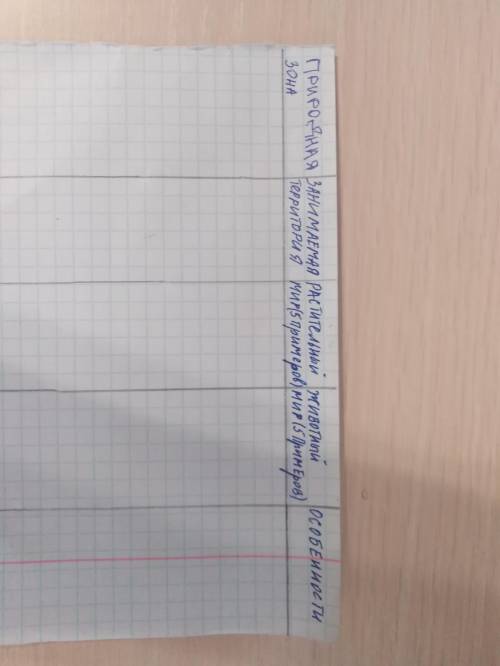 ПРИРОДНАЯ
ЗОНА
ЗАНИМАЕМАЯ
ТЕРРИТОРИЯ
РАСТИТЕЛЬНЫЙ
МИР(5 примеров)
ЖИВОТНЫЙ
МИР(5 ПримЕРов)
ОСОБЕННОСТИ